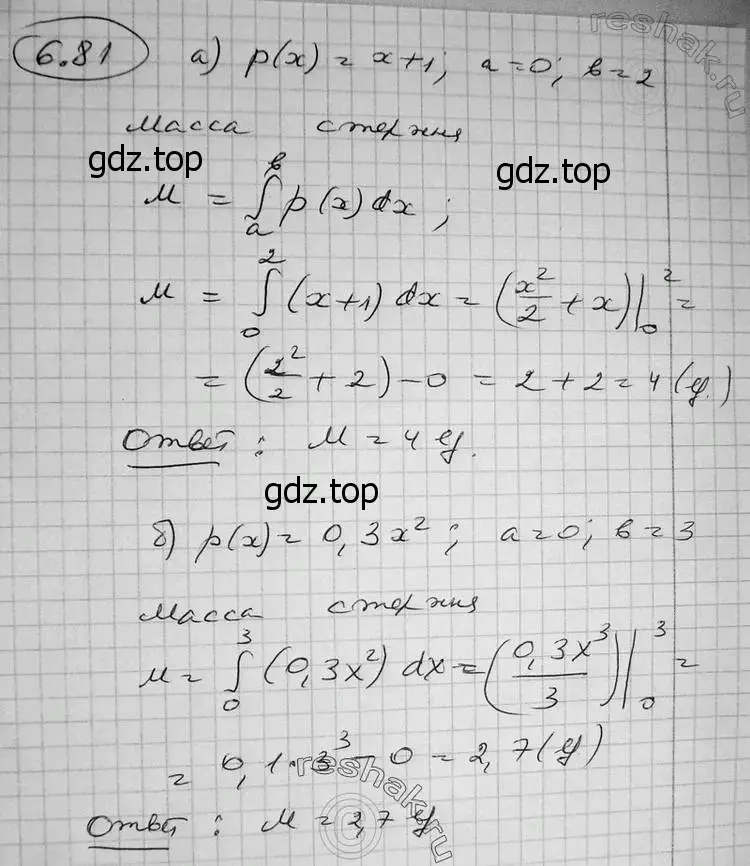 6.81 а) p(x) = x+1; a=0; b=2
Масса стержня
gdz.top gdz.top
M = ∫ₐᵇ p(x) dx;
M = ∫₀² (x+1) dx = (x²/2 + x)|₀² =
= (2²/2 + 2) - 0 = 2 + 2 = 4 (г.)
Ответ: M = 4 г.
gdz.top
б) p(x) = 0,3x²; a=0; b=3
Масса стержня
M = ∫₀³ (0,3x²) dx = (0,3x³/3)|₀³ =
= 0,1·3³ - 0 = 2,7 (г)
Ответ: M = 2,7 г
reshak.ru
reshak.ru